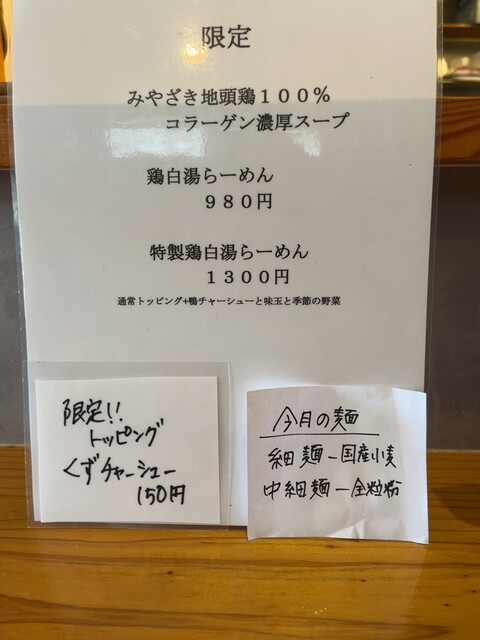 限定
みやざき地頭鶏１００％
コラーゲン濃厚スープ
鶏白湯らーめん
９８０円
特製鶏白湯らーめん
１３００円
通常トッピング+鴨チャーシューと味玉と季節の野菜
限定!!
トッピング
くずチャーシュー
150円
今月の麺
細麺－国産小麦
中細麺－全粒粉